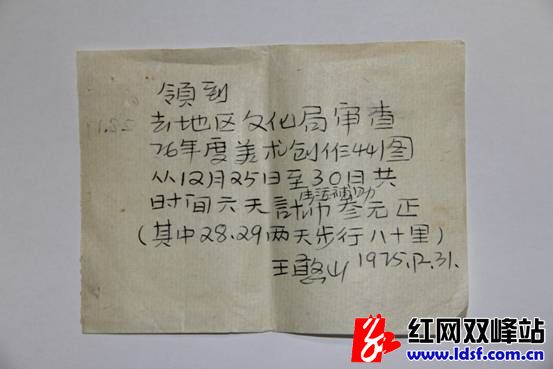 領到
去地区文化局审查
76年度美术创作441图
从12月25日至30日共
时间六天計币叁元正
生活補助
(其中28.29两天步行八十里)
王憨山 1975.12.31.
红网双峰站
www.ldsf.com.cn